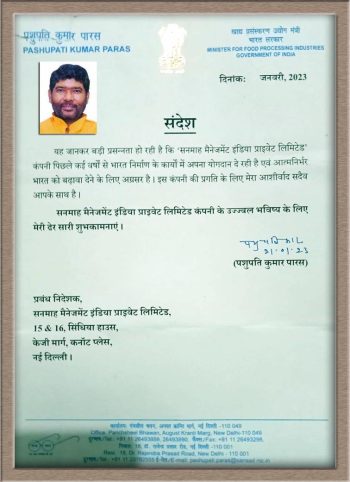 पशुपति कुमार पारस
PASHUPATI KUMAR PARAS
खाद्य प्रसंस्करण उद्योग मंत्री
भारत सरकार
MINISTER FOR FOOD PROCESSING INDUSTRIES
GOVERNMENT OF INDIA
दिनांकः जनवरी, 2023
संदेश
यह जानकर बड़ी प्रसन्नता हो रही है कि 'सनमाह मैनेजमेंट इंडिया प्राइवेट लिमिटेड'
कंपनी पिछले कई वर्षो से भारत निर्माण के कार्यो में अपना योगदान दे रही है एवं आत्मनिर्भर
भारत को बढ़ावा देने के लिए अग्रसर है। इस कंपनी की प्रगति के लिए मेरा आशीर्वाद सदैव
आपके साथ है।
सनमाह मैनेजमेंट इंडिया प्राइवेट लिमिटेड कंपनी के उज्ज्वल भविष्य के लिए
मेरी ढेर सारी शुभकामनाएं।
21.01.23
(पशुपति कुमार पारस)
प्रबंध निदेशक,
सनमाह मैनेजमेंट इंडिया प्राइवेट लिमिटेड,
15 & 16, सिंधिया हाउस,
केजी मार्ग, कनॉट प्लेस,
नई दिल्ली।
कार्यालयः पंचशील भवन, अगस्त क्रान्ति मार्ग, नई दिल्ली -110 049
Office: Panchsheel Bhawan, August Kranti Marg, New Delhi-110 049
Tel.: +91 11 26493889, 26493890, Fax: +91 11 26493298,
Resi. 18, Dr. Rajendra Prasad Road, New Delhi-110 001